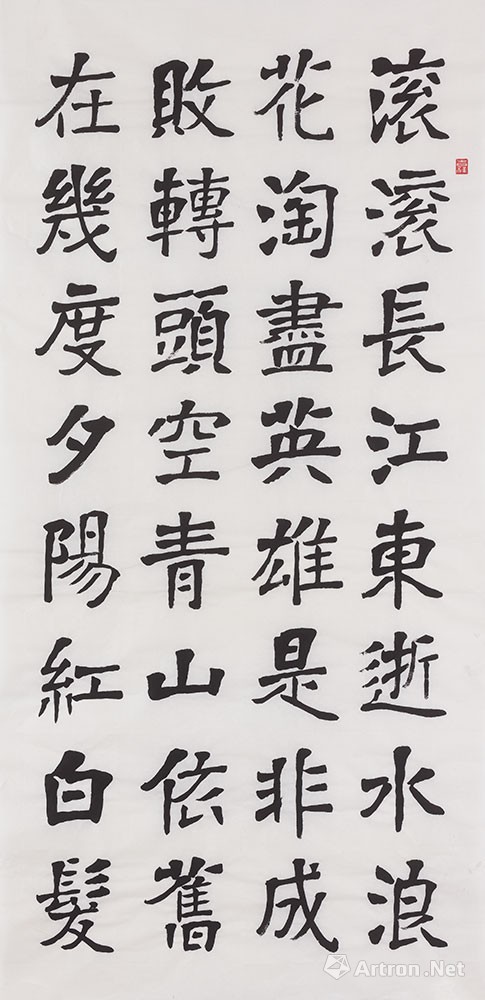 滚滚長江東逝水浪
花淘盡英雄是非成
敗轉頭空青山依舊
在幾度夕陽紅白髮
Artron.Net